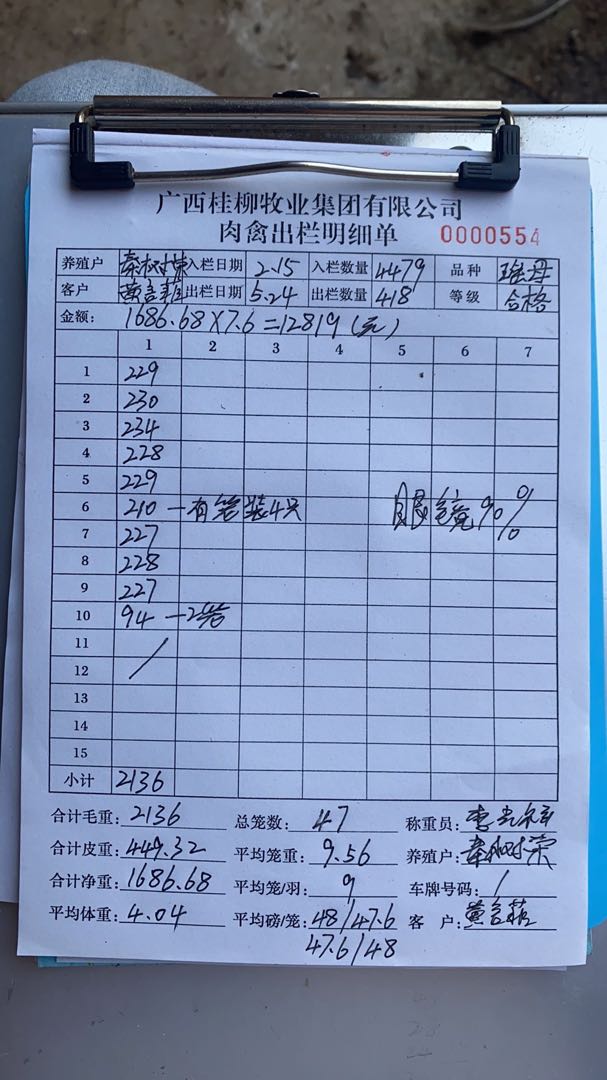 广西桂柳牧业集团有限公司
肉禽出栏明细单 0000554
养殖户 秦树荣 入栏日期 2.15 入栏数量 4479 品种
客户 黄言菲 出栏日期 5.24 出栏数量 418 等级 合格
金额: 1686.68×7.6=12819(元)
1 2 3 4 5 6 7
1 229
2 230
3 234
4 228
5 229
6 210 一有笼装4只 眼镜9%
7 227
8 228
9 227
10 94 一2笼
11 /
12
13
14
15
小计 2136
合计毛重: 2136 总笼数: 47 称重员: 李
合计皮重: 449.32 平均笼重: 9.56 养殖户: 秦树荣
合计净重: 1686.68 平均笼/羽: 9 车牌号码: /
平均体重: 4.04 平均磅/笼: 48/47.6 客户: 黄言菲
47.6/48